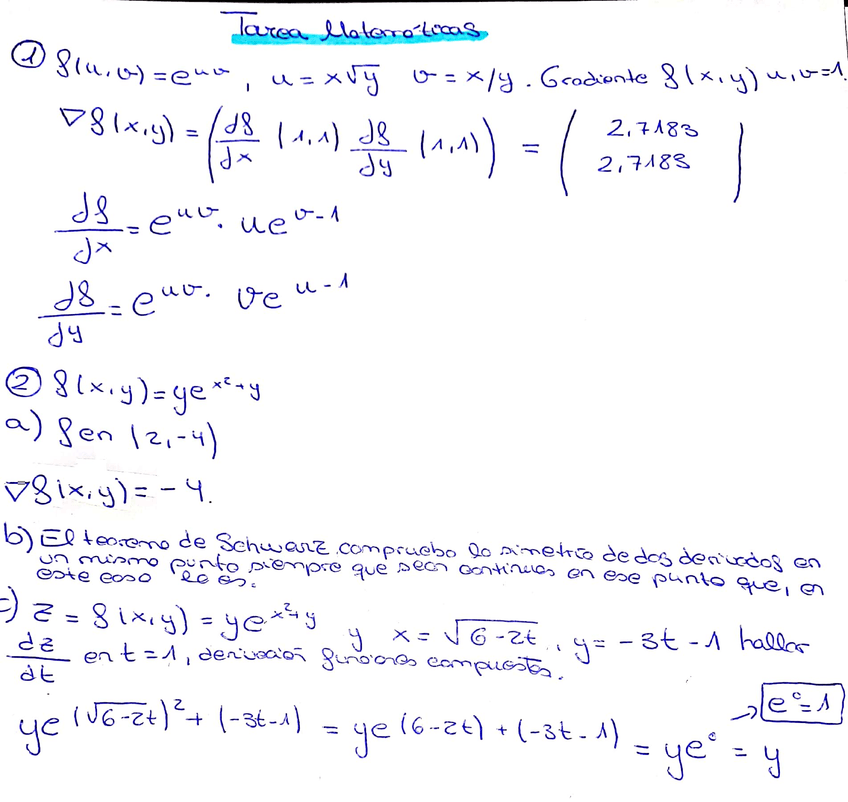 Tarea Matemáticas
① f(u,v)=e^{uv}, u = x√y v = x/y. Gradiente f(x,y) u,v=1.
∇f(x,y) = (df/dx (1,1) df/dy (1,1)) = ( 2,7183 2,7183 )
df/dx = e^{uv}. ue^{v-1}
df/dy = e^{uv}. ve^{u-1}
② f(x,y)=ye^{x²+y}
a) f en (2,-4)
∇f(x,y)=-4.
b) El teorema de Schwarz comprueba la simetría de dos derivadas en
un mismo punto siempre que sean continuas en ese punto que, en
este caso lo es.
c) z = f(x,y) = ye^{x²+y} y x = √6-2t, y = -3t-1 hallar
dz/dt en t=1, derivación funciones compuestas.
ye^{(√6-2t)²+(-3t-1)} = ye^{(6-2t)+(-3t-1)} = ye⁰ = y
→ e⁰=1